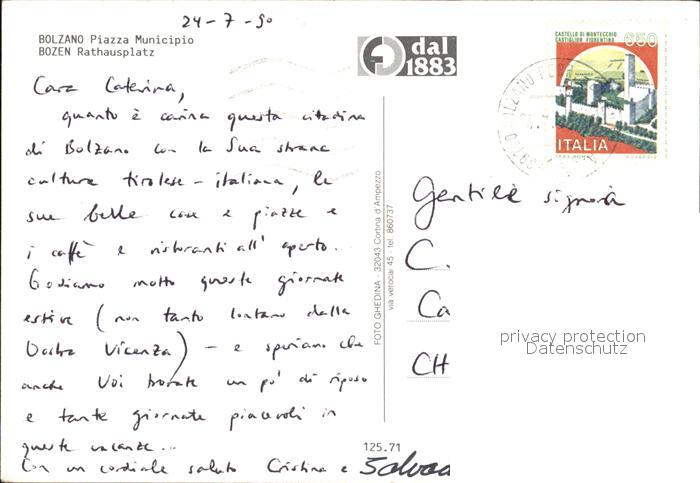 24-7-90
BOLZANO Piazza Municipio
BOZEN Rathausplatz
dal
1883
CASTELLO DI MONTECCHIO
CASTIGLION FIORENTINO
650
ITALIA
Cara Caterina,
quanto è carina questa citadina
di Bolzano con la Sua strana
cultura tirolese - italiana, le
sue belle case e piazze e
i caffè e ristoranti all' aperto.
Godiamo molto queste giornate
estive (non tanto lontano dalla
Vostra Vicenza) - e speriamo che
anche Voi trovate un pò di riposo
e tante giornate piacevoli in
queste vacanze...
Con un cordiale saluto Cristina e
FOTO GHEDINA - 32043 Cortina d'Ampezzo
via verocai 45 - tel. 860737
Gentile signora
C.
Ca
CH
privacy protection
Datenschutz
125.71